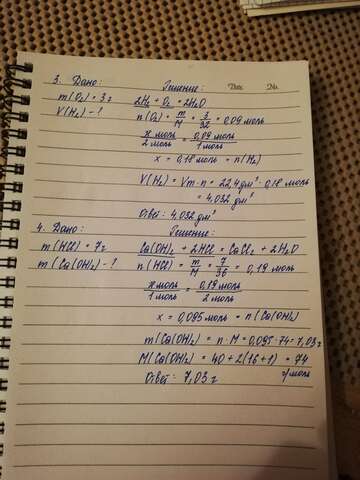 3. Дано: Решение: Date No.
m(O₂) = 3 г 2H₂ + O₂ = 2H₂O
V(H₂) - ? n(O₂) = m/M = 3/32 = 0,09 моль
x моль/2 моль = 0,09 моль/1 моль
x = 0,18 моль = n(H₂)
V(H₂) = Vm · n = 22,4 дм³ · 0,18 моль
= 4,032 дм³
Ответ: 4,032 дм³
4. Дано: Решение:
m(HCl) = 7 г Ca(OH)₂ + 2HCl = CaCl₂ + 2H₂O
m(Ca(OH)₂) - ? n(HCl) = m/M = 7/36 = 0,19 моль
x моль/1 моль = 0,19 моль/2 моль
x = 0,095 моль = n(Ca(OH)₂)
m(Ca(OH)₂) = n · M = 0,095 · 74 = 7,03 г
M(Ca(OH)₂) = 40 + 2(16+1) = 74 г/моль
Ответ: 7,03 г